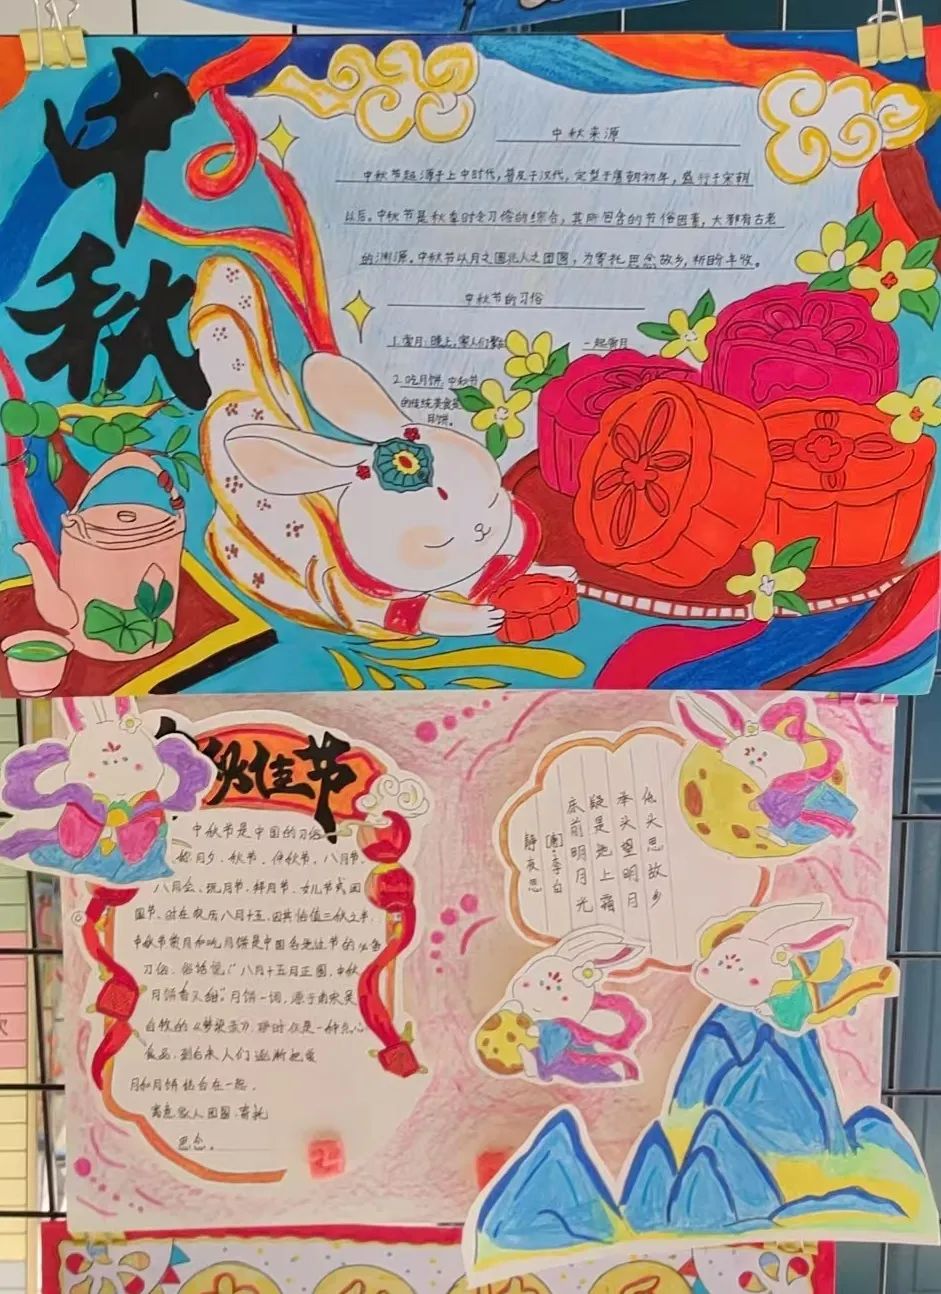 中秋
中秋来源
中秋节起源于上古时代，普及于汉代，定型于唐朝初年，盛行于宋朝
以后。中秋节是秋季时令习俗的综合，其所包含的节俗因素，大都有古老
的渊源。中秋节以月之圆兆人之团圆，为寄托思念故乡，祈盼丰收。
中秋节的习俗
1.赏月：晚上，家人们 一起赏月
2.吃月饼：中秋节
的传统美食是
月饼。
秋佳节
中秋节是中国的习俗
如月夕、秋节、仲秋节、八月节、
八月会、玩月节、拜月节、女儿节或团
圆节，时在农历八月十五，因其恰值三秋之半，
中秋节赏月和吃月饼是中国各地过节的必备
习俗，俗话说："八月十五月正圆，中秋
月饼香又甜"月饼一词，源于南宋吴
自牧的《梦粱录》，那时仅是一种点心
食品，到后来人们逐渐把赏
月和月饼结合在一起，
寓意家人团圆，寄托
思念。
静夜思
[唐]·李白
床前明月光
疑是地上霜
举头望明月
低头思故乡